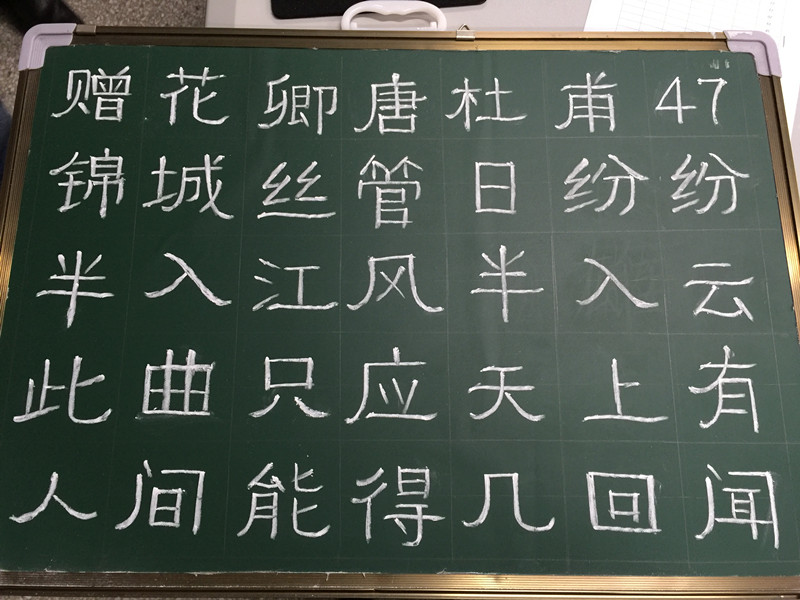 赠花卿唐杜甫47
锦城丝管日纷纷
半入江风半入云
此曲只应天上有
人间能得几回闻